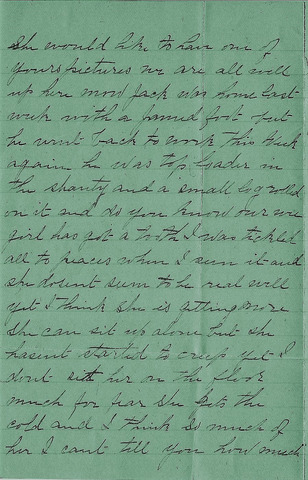 She would like to have one of
yours pictures we are all well
up here now Jack was home last
week with a jamed foot but
he went back to work this week
again he was top loader in
the shanty and a small log rolled
on it and do you know our wee
girl has got a tooth I was tickled
all to peaces when I seen it and
she dosent seem to be real well
yet I think she is getting more
she can sit up alone but she
hasent started to creep yet I
dont sett her on the floor
much for fear she gets the
cold and I think so much of
her I cant till you how much